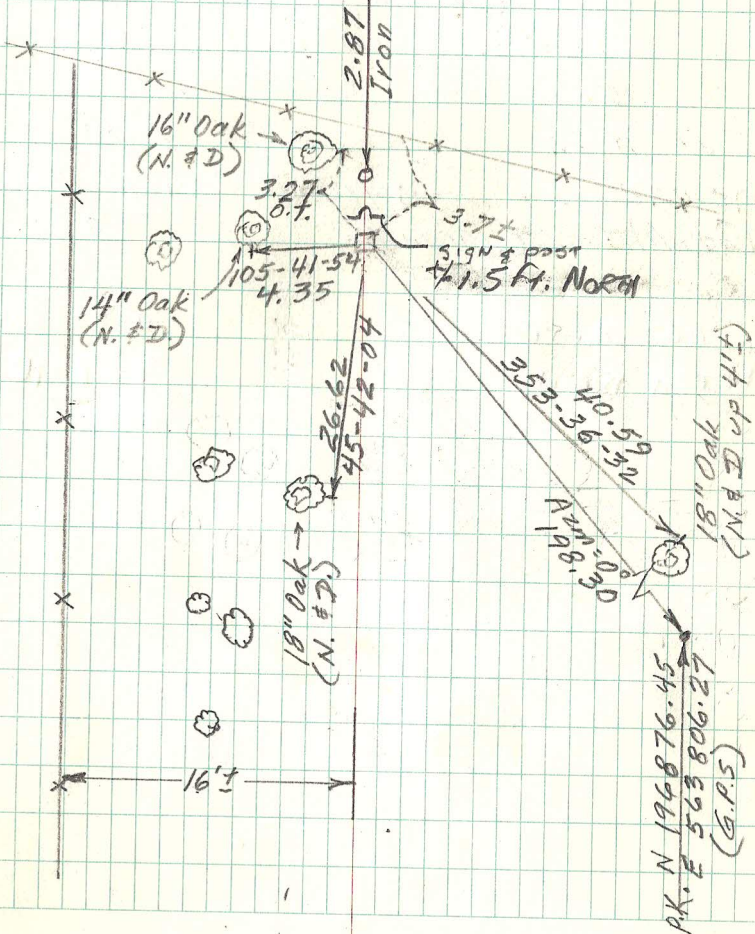 2.87
Iron
16" Oak
(N. & D)
3.27
O.t.
3.7±
Sign & post
+/- 1.5 Ft. NORTH
105-41-54
4.35
14" Oak
(N. & D.)
26.62
45-42-04
40.59
353-36-32
18" Oak
(N. & D up 4'±)
Azm=0°
198.30
18" Oak
(N. & D.)
16'±
P.K. N 196876.45
E 563806.27
(G.P.S)